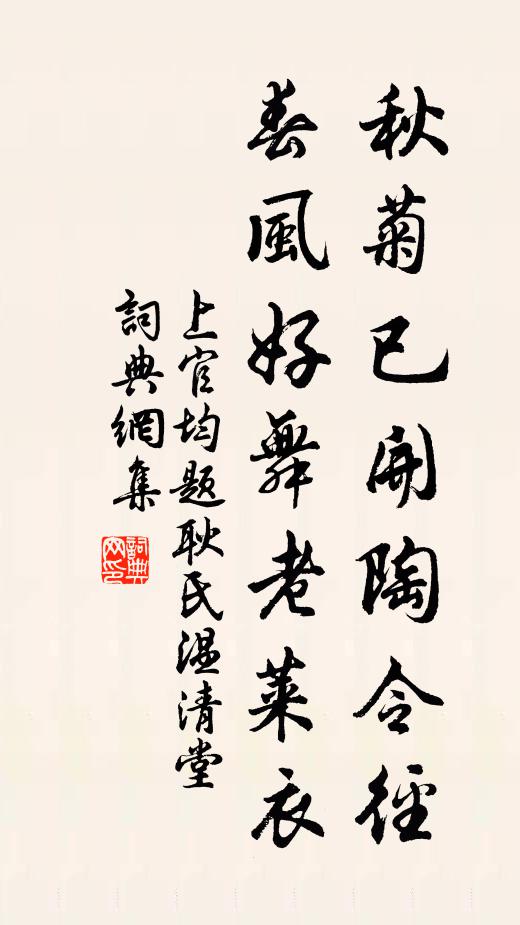 秋菊已開陶令徑
春風好舞老萊衣
上官均題耿氏温清堂
詞典網集
詞典网印